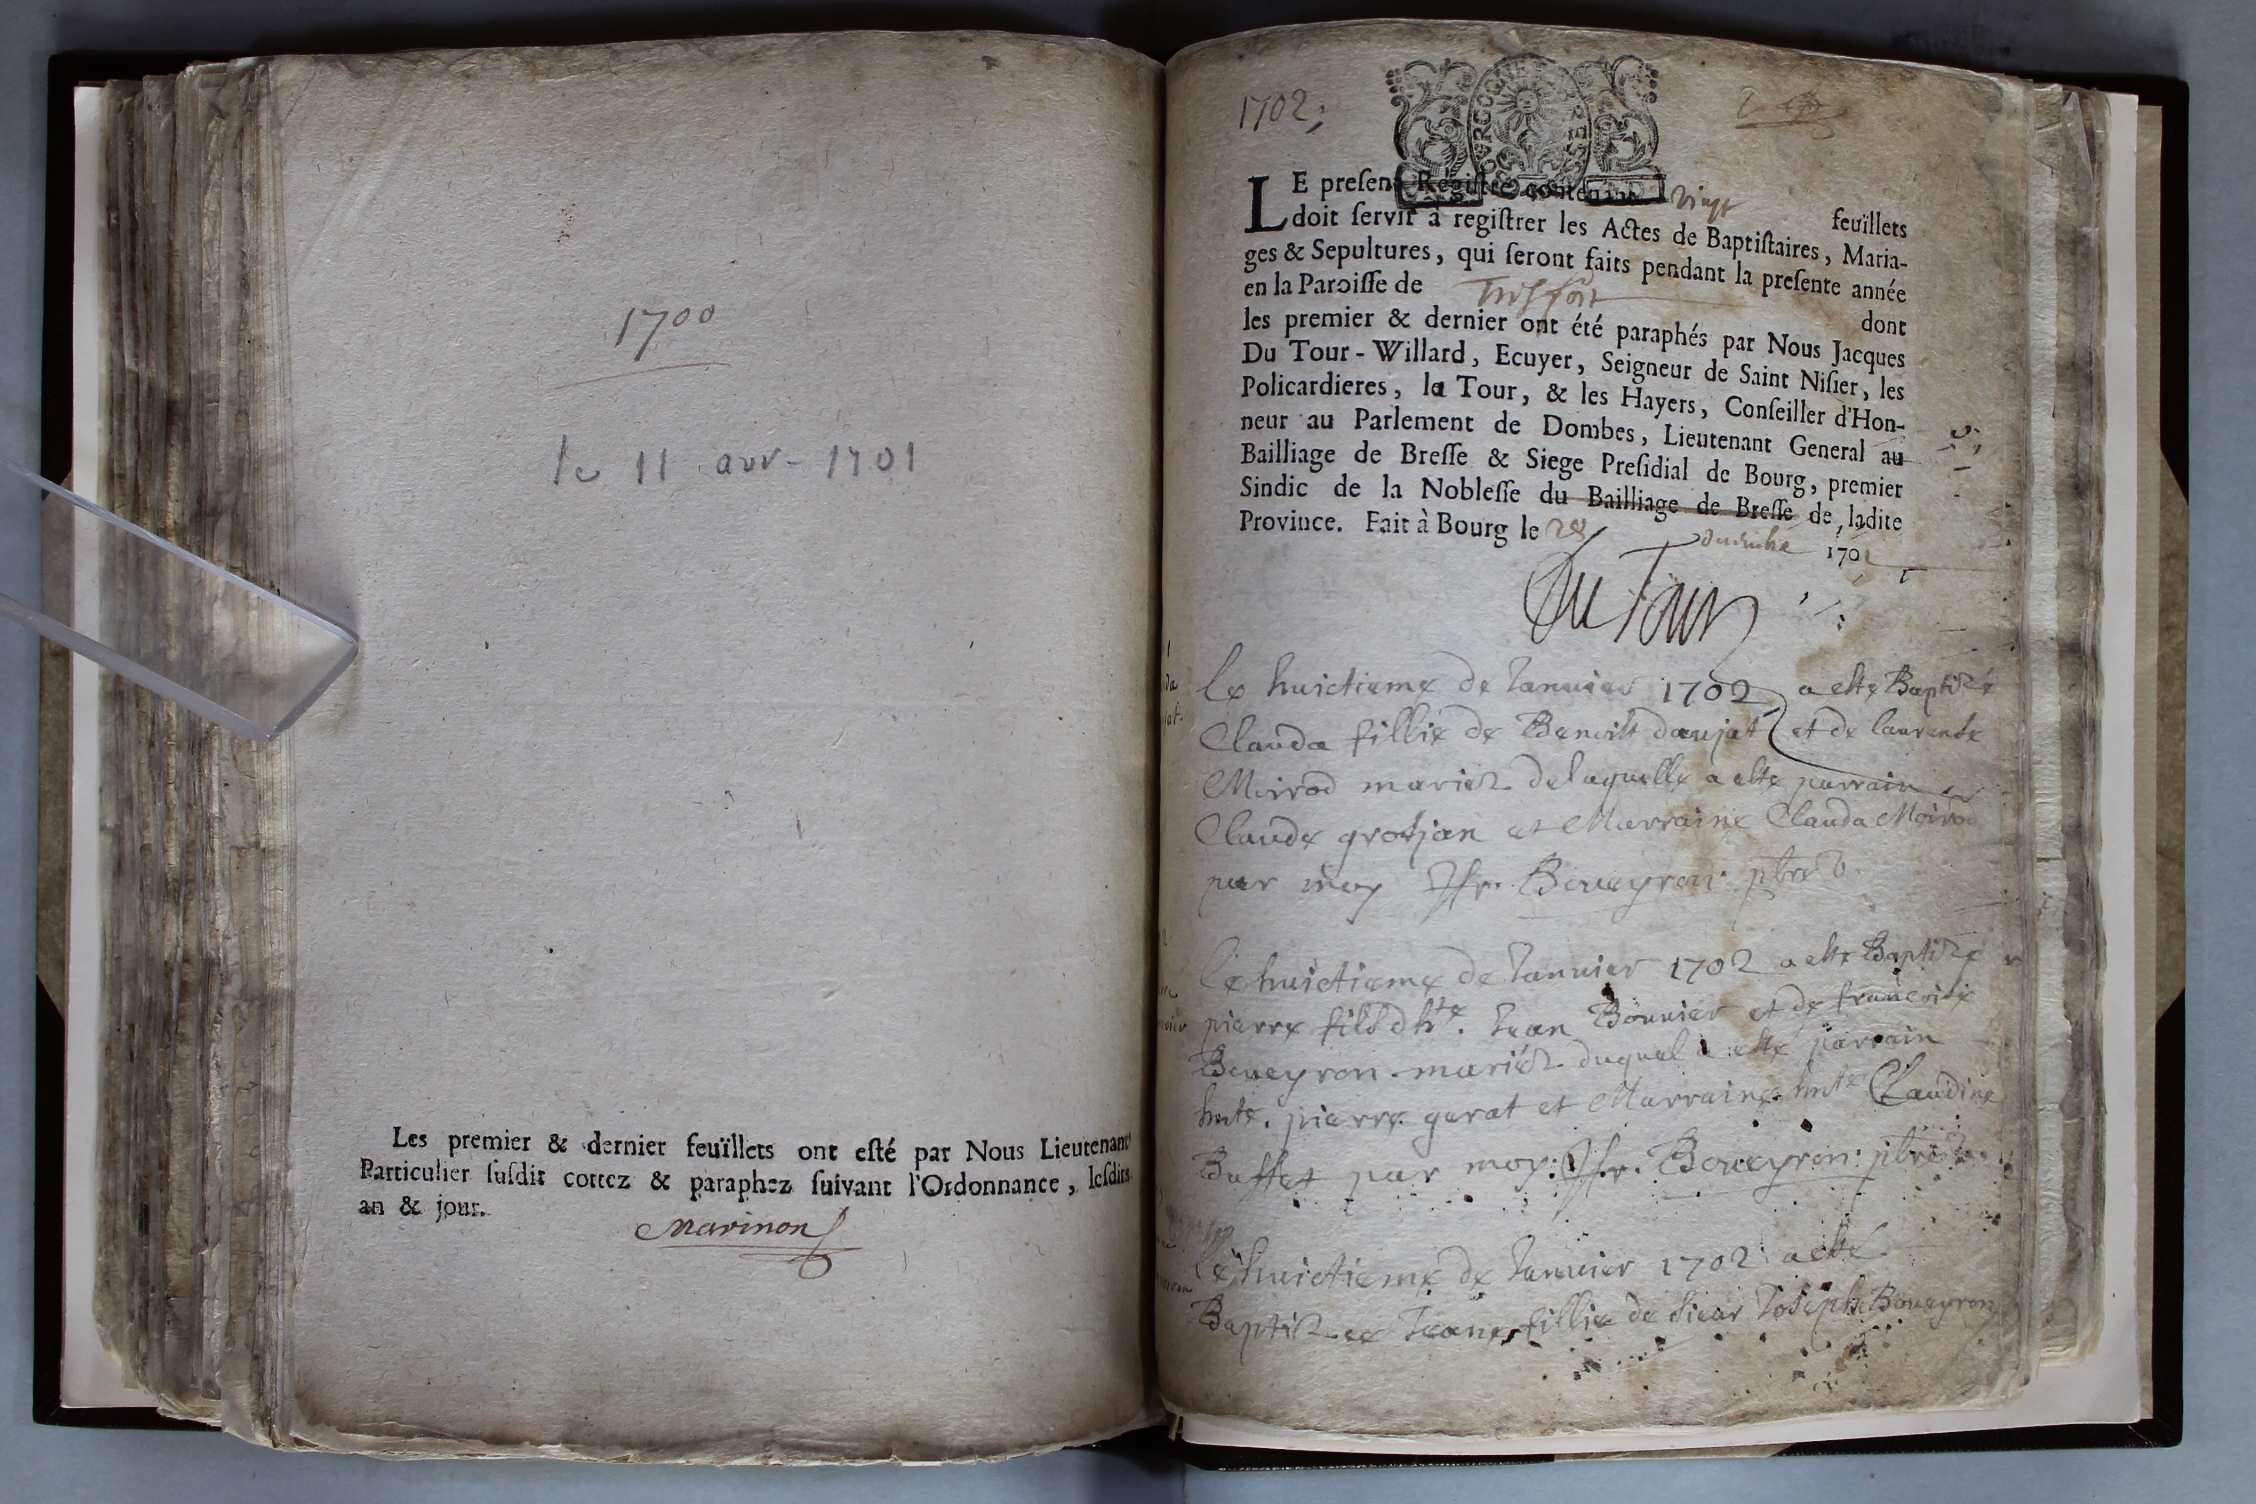 1700
le 11 avr - 1701
Les premier & dernier feuïllets ont eſté par Nous Lieutenant
Particulier ſuſdit cottez & paraphez ſuivant l'Ordonnance, leſdits
an & jour.
Marinon
1702;
LE preſent Regiſtre contenant vingt feuïllets
doit ſervir à regiſtrer les Actes de Baptiſtaires, Maria-
ges & Sepultures, qui ſeront faits pendant la preſente année
en la Paroiſſe de Treffort dont
les premier & dernier ont été paraphés par Nous Jacques
Du Tour-Willard, Ecuyer, Seigneur de Saint Niſier, les
Policardieres, la Tour, & les Hayers, Conſeiller d'Hon-
neur au Parlement de Dombes, Lieutenant General au
Bailliage de Breſſe & Siege Preſidial de Bourg, premier
Sindic de la Nobleſſe du Bailliage de Breſſe de ladite
Province. Fait à Bourg le 28 170
Du Tour
Le huictieme de Januier 1702 a este Baptizé
Clauda fillie de Benoist daujat et de laurence
Moirod mariez delaquelle a este parrain
Claude grosjan et Marraine Clauda Moirod
par moy Boueyron pbre
Le huictieme de Januier 1702 a este Baptizé
pierre fils dh.te Jean Bonnier et de francoise
Boueyron mariéz duquel a esté parrain
hnte. pierre garat et Marraine hnte Claudine
Buffet par moy: Boueyron pbre
Le huictieme de Januier 1702 a esté
Baptizee Jeane fillie de sieur Joseph Boueyron